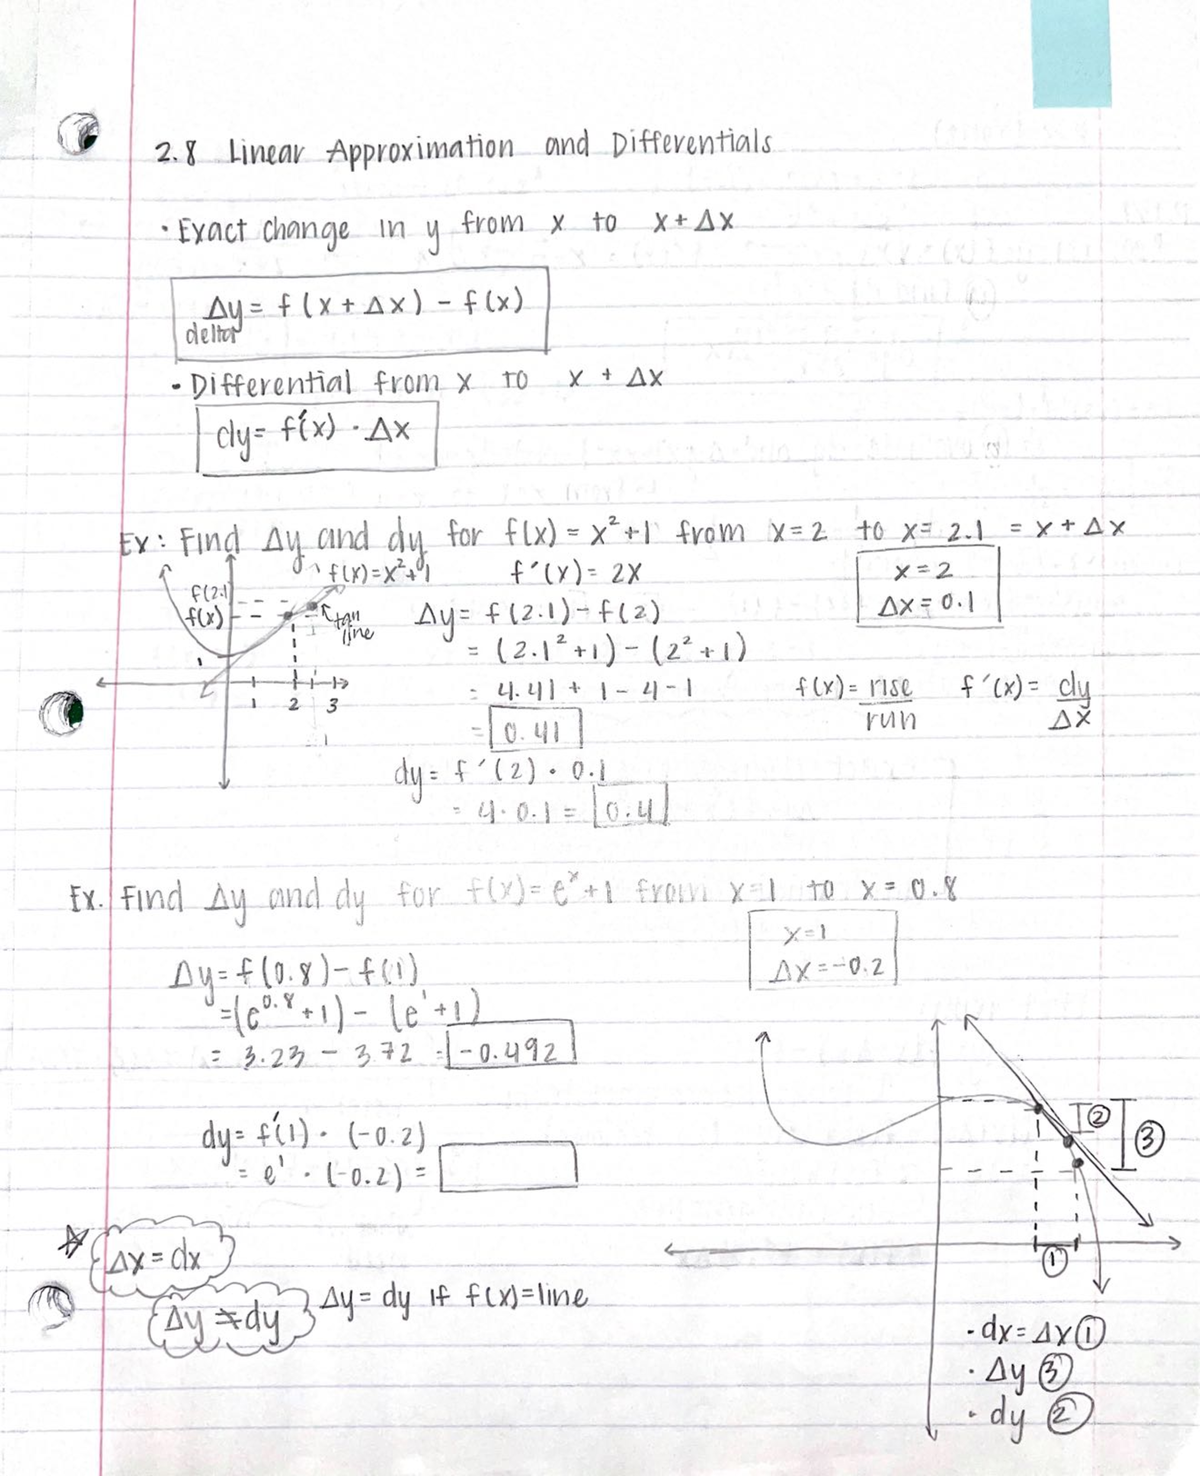 2.8 Linear Approximation and Differentials
• Exact change in y from x to x + Δx
Δy = f(x + Δx) - f(x)
delta
• Differential from x to x + Δx
dy = f'(x) · Δx
Ex: Find Δy and dy for f(x) = x² + 1 from x = 2 to x = 2.1 = x + Δx
f(x) = x² + 1
f(2.1)
f(x)
tan line
1
1 2 3
f'(x) = 2x
x = 2
Δx = 0.1
Δy = f(2.1) - f(2)
= (2.1² + 1) - (2² + 1)
= 4.41 + 1 - 4 - 1
= 0.41
f(x) = rise/run f'(x) = dy/Δx
dy = f'(2) · 0.1
= 4 · 0.1 = 0.4
Ex. Find Δy and dy for f(x) = eˣ + 1 from x = 1 to x = 0.8
x = 1
Δx = -0.2
Δy = f(0.8) - f(1)
= (e^0.8 + 1) - (e^1 + 1)
= 3.23 - 3.72 = -0.492
dy = f'(1) · (-0.2)
= e^1 · (-0.2) =
② ③
①
☆ Δx = dx
Δy ≠ dy Δy = dy if f(x) = line
• dx = Δx ①
• Δy ③
• dy ②